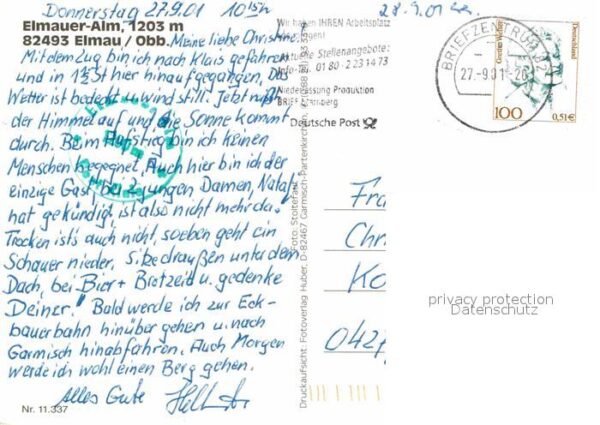 Donnerstag 27.9.01 10 15h
Elmauer-Alm, 1203 m
82493 Elmau / Obb.
Meine liebe Christine.
Mit dem Zug bin ich nach Klais gefahren
und in 1¾ St hier hinaufgegangen, Das
Wetter ist bedeckt u. windstill. Jetzt reißt
der Himmel auf und die Sonne kommt
durch. Beim Aufstieg bin ich keinen
Menschen begegnet. Auch hier bin ich der
einzige Gast, bei 2 jungen Damen,
hat gekündigt, ist also nicht mehr da.
Trocken ist's auch nicht, soeben geht ein
Schauer nieder. Sitze draußen unter dem
Dach, bei Bier + Brotzeit u. gedenke
Deiner! Bald werde ich zur Eck-
bauerbahn hinüber gehen u. nach
Garmisch hinabfahren. Auch Morgen
werde ich wohl einen Berg gehen.
Alles Gute
Nr. 11.337
Wir haben IHREN Arbeitsplatz
Aktuelle Stellenangebote:
Info-Tel. 01 80 - 2 23 14 73
Niederlassung Produktion
BRIEF
Deutsche Post
28.9.01
BRIEFZENTRUM 82
27-9.01-20
Deutschland
100
0,51 €
Druckaufsicht Fotoverlag Huber, D-82467 Garmisch-Partenkirchen,
Fra
Chr
Ko
042
privacy protection
Datenschutz